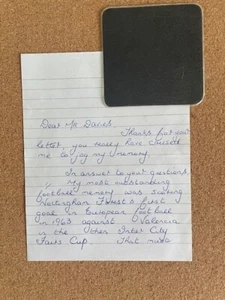 Dear Mr Davies
Thanks for your
letter, you really have
me to jog my memory.
In answer to your questions,
My most outstanding
football memory was scoring
Nottingham Forest's first
goal in European football
in 1963 against Valencia
in the then Inter City
Fairs Cup. That was